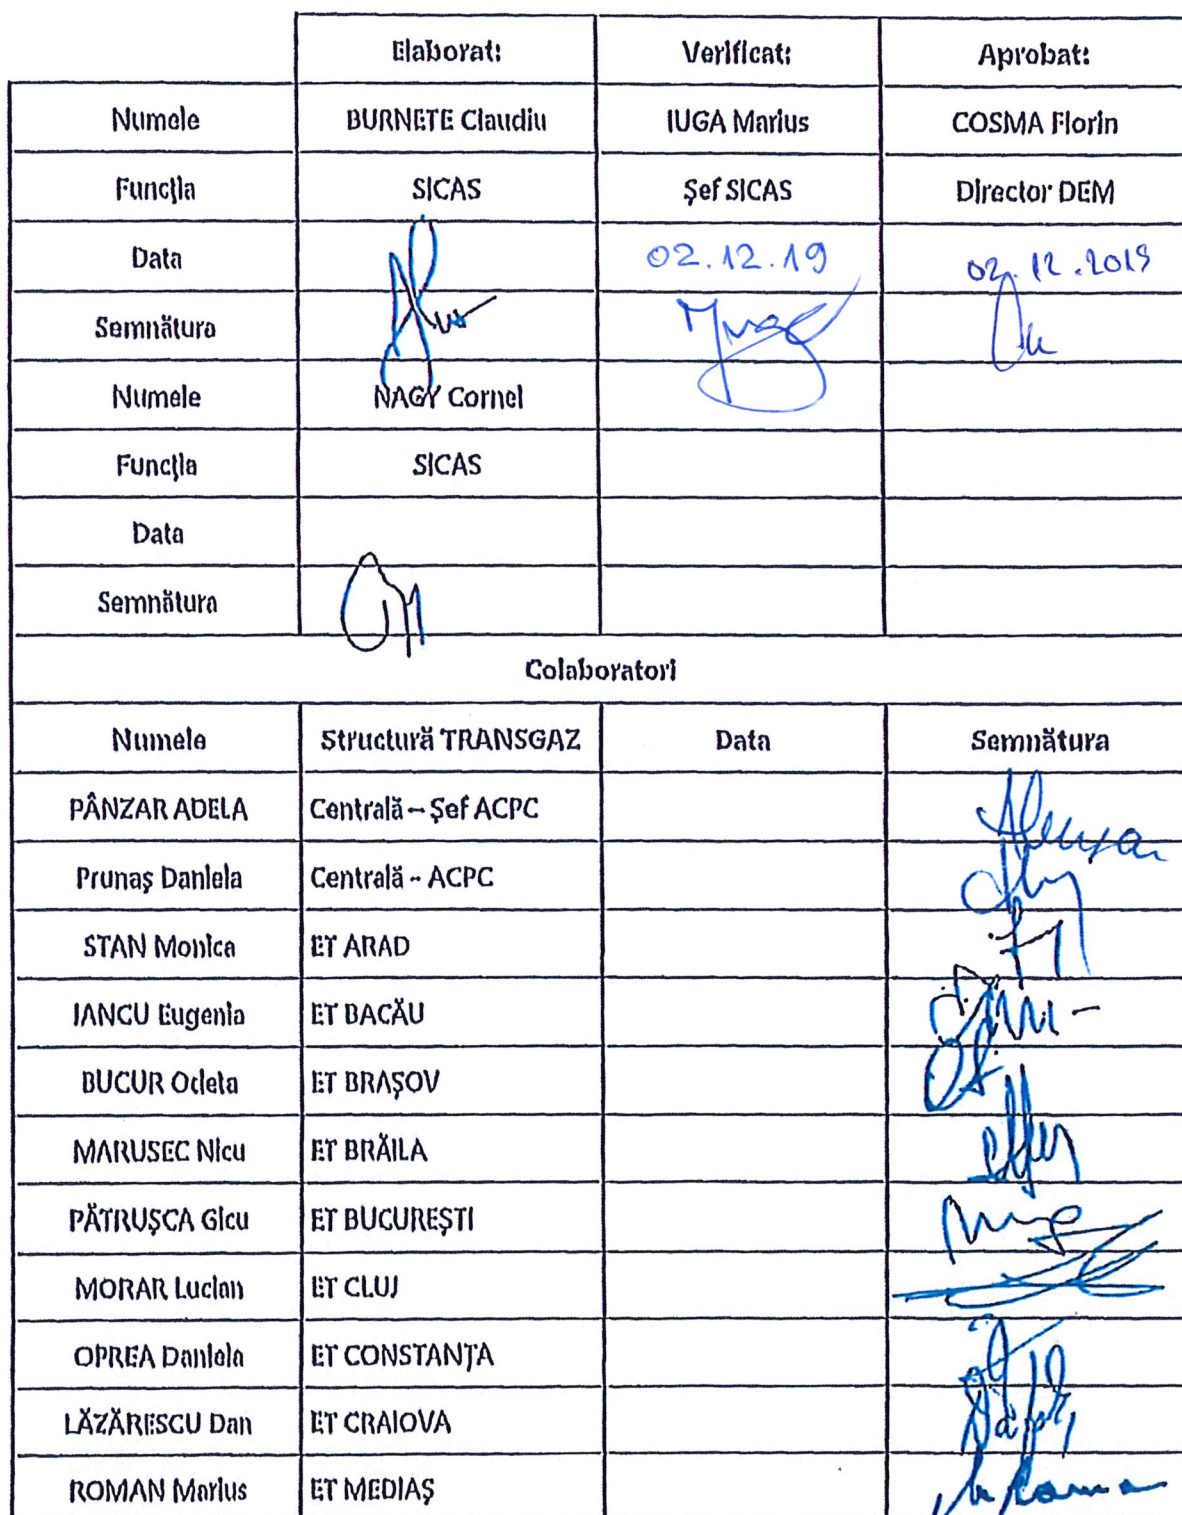 Elaborat: Verificat: Aprobat:
Numele BURNETE Claudiu IUGA Marius COSMA Florin
Funcţia SICAS Şef SICAS Director DEM
Data 02.12.19 02.12.2019
Semnătura
Numele NAGY Cornel
Funcţia SICAS
Data
Semnătura
Colaboratori
Numele Structură TRANSGAZ Data Semnătura
PÂNZAR ADELA Centrală – Şef ACPC
Prunaş Daniela Centrală - ACPC
STAN Monica ET ARAD
IANCU Eugenia ET BACĂU
BUCUR Odeta ET BRAŞOV
MARUSEC Nicu ET BRĂILA
PĂTRUŞCA Gicu ET BUCUREŞTI
MORAR Lucian ET CLUJ
OPREA Daniela ET CONSTANŢA
LĂZĂRESCU Dan ET CRAIOVA
ROMAN Marius ET MEDIAŞ